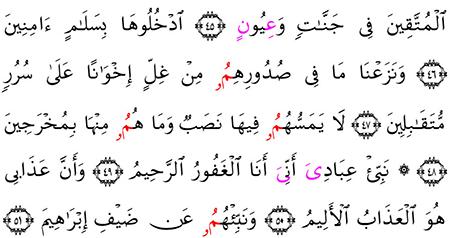 اَ۬لْمُتَّقِينَ فِى جَنَّٰتٖ وَعِيُونٍ ﴿٤٥﴾ اَ۟دْخُلُوهَا بِسَلَٰمٍ ءَامِنِينَ
﴿٤٦﴾ وَنَزَعْنَا مَا فِى صُدُورِهِمُۥ مِنْ غِلٍّ إِخْوَٰنًا عَلَىٰ سُرُرٖ
مُّتَقَٰبِلِينَ ﴿٤٧﴾ لَا يَمَسُّهُمُۥ فِيهَا نَصَبٞ وَمَا هُمُۥ مِنْهَا بِمُخْرَجِينَ
﴿٤٨﴾ ۞ نَبِّئْ عِبَادِىَ أَنِّىَ أَنَا اَ۬لْغَفُورُ اُ۬لرَّحِيمُ ﴿٤٩﴾ وَأَنَّ عَذَابِى
هُوَ اَ۬لْعَذَابُ اُ۬لْأَلِيمُ ﴿٥٠﴾ وَنَبِّئْهُمُۥ عَن ضَيْفِ إِبْرَٰهِيمَ ﴿٥١﴾